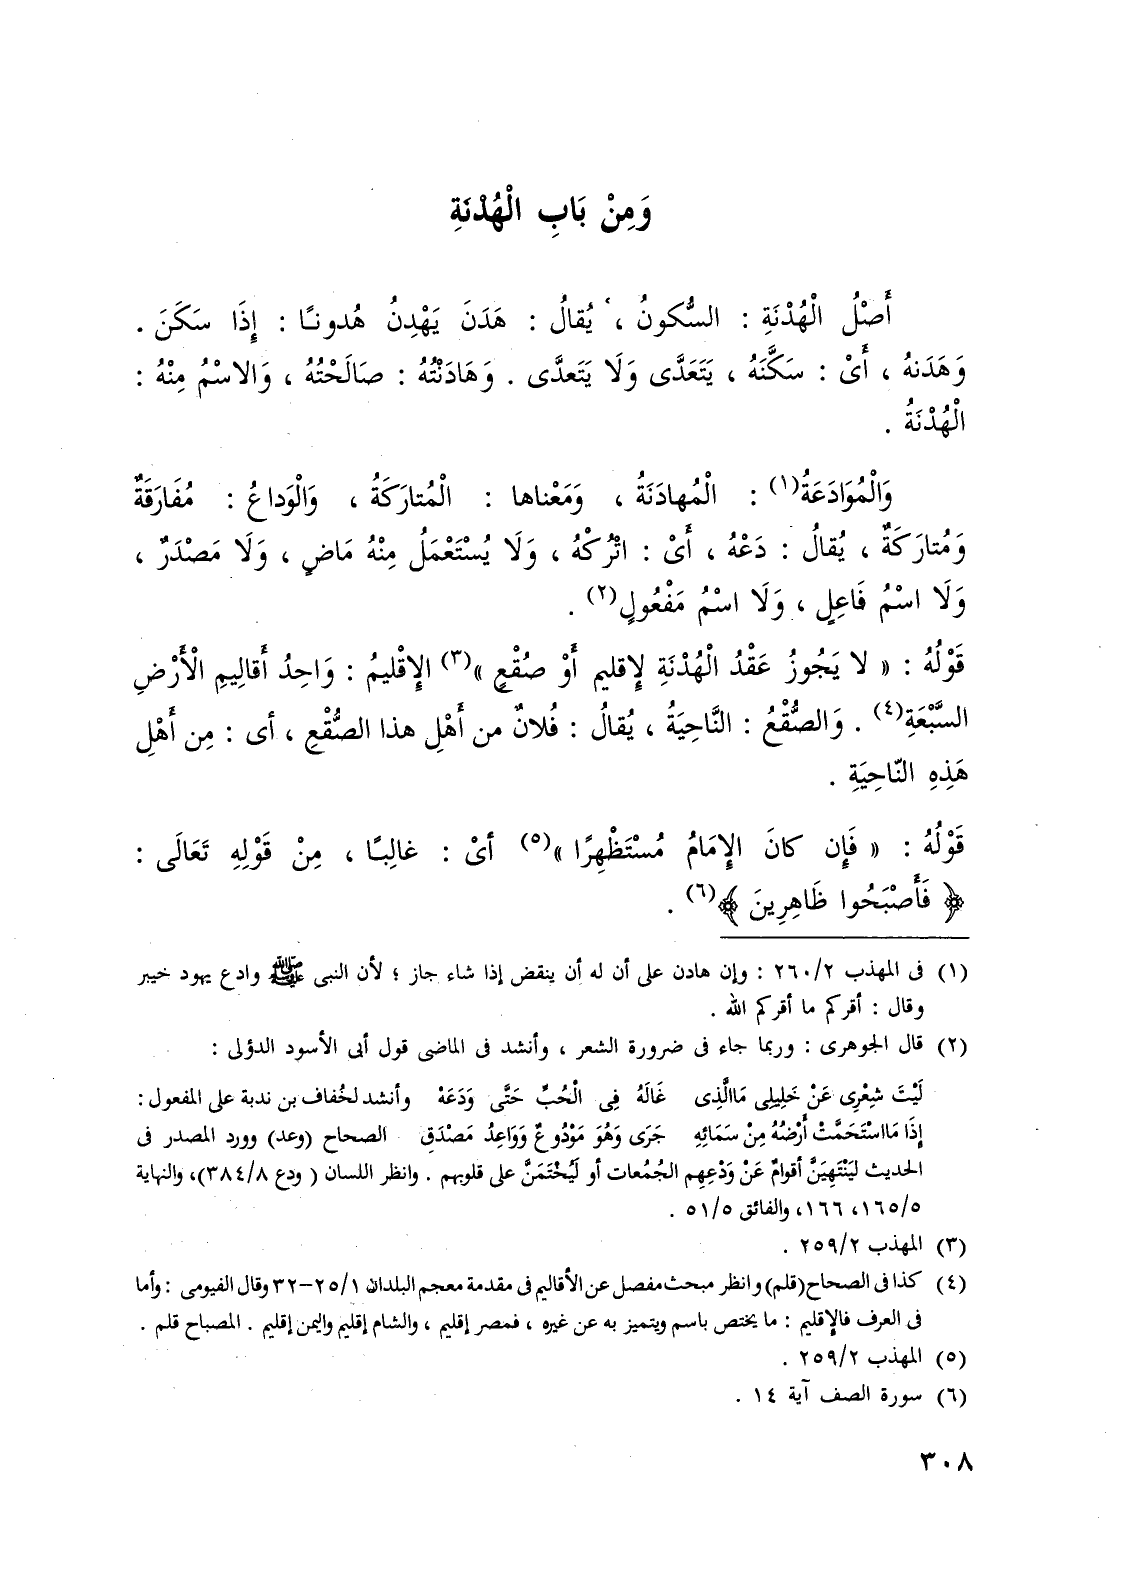 وَمِنْ بَابِ الْهُدْنَةِ
أَصْلُ الْهُدْنَةِ : السُّكونُ ، يُقالُ : هَدَنَ يَهْدِنُ هُدونـًا : إِذَا سَكَنَ .
وَهَدَنهُ ، أَىْ : سَكَّنَهُ ، يَتَعَدَّى وَلَا يَتَعدَّى . وَهَادَنْتُهُ : صَالَحْتُهُ ، وَالاسْمُ مِنْهُ :
الْهُدْنَةُ .
وَالْمُوَادَعَةُ(١) : الْمُهادَنَةُ ، وَمَعْناها : الْمُتارَكَةُ ، وَالْوَداعُ : مُفَارَقَةٌ
وَمُتارَكَةٌ ، يُقالُ : دَعْهُ ، أَىْ : اتْرُكْهُ ، وَلَا يُسْتَعْمَلُ مِنْهُ مَاضٍ ، وَلَا مَصْدَرٌ ،
وَلَا اسْمُ فَاعِلٍ ، وَلَا اسْمُ مَفْعُولٍ(٢) .
قَوْلُهُ : « لا يَجُوزُ عَقْدُ الْهُدْنَةِ لِإقليم أَوْ صُقْعٍ »(٣) الإِقْليمُ : وَاحِدُ أَقَالِيمِ الْأَرْضِ
السَّبْعَةِ(٤) . وَالصُّقْعُ : النَّاحِيَةُ ، يُقالُ : فُلانٌ من أَهْلِ هذا الصُّقْعِ ، أى : مِن أَهْلِ
هَذِهِ النّاحِيَةِ .
قَوْلُهُ : « فَإِن كانَ الإِمَامُ مُسْتَظْهِرًا »(٥) أىْ : غالِبـًا ، مِنْ قَوْلِهِ تَعَالَى :
﴿ فَأَصْبَحُوا ظَاهِرِينَ ﴾(٦) .
(١) فى المهذب ٢٦٠/٢ : وإن هادن على أن له أن ينقض إذا شاء جاز ؛ لأن النبى ﷺ وادع يهود خيبر
وقال : أقركم ما أقركم الله .
(٢) قال الجوهرى : وربما جاء فى ضرورة الشعر ، وأنشد فى الماضى قول أبى الأسود الدؤلى :
لَيْتَ شِعْرِى عَنْ خَلِيلِى مَاالَّذِى غَالَهُ فِى الْحُبِّ حَتَّى وَدَعَهْ وأنشد لخُفاف بن ندبة على المفعول :
إذَا مَااسْتَحَمَّتْ أَرْضُهُ مِنْ سَمَائِهِ جَرَى وَهُوَ مَوْدُوعٌ وَوَاعِدُ مَصْدَقِ الصحاح (وعد) وورد المصدر فى
الحديث لِيَنْتَهِيَنَّ أقوامٌ عَنْ وَدْعِهِم الجُمُعات أو لَيُخْتَمَنَّ على قلوبهم . وانظر اللسان ( ودع ٣٨٤/٨)، والنهاية
١٦٥/٥، ١٦٦، والفائق ٥١/٥ .
(٣) المهذب ٢٥٩/٢ .
(٤) كذا فى الصحاح (قلم) وانظر مبحث مفصل عن الأقاليم فى مقدمة معجم البلدان ٢٥/١–٣٢ وقال الفيومى : وأما
فى العرف فالإقليم : ما يختص باسم ويتميز به عن غيره ، فمصر إقليم ، والشام إقليم واليمن إقليم . المصباح قلم .
(٥) المهذب ٢٥٩/٢ .
(٦) سورة الصف آية ١٤ .
٣٠٨